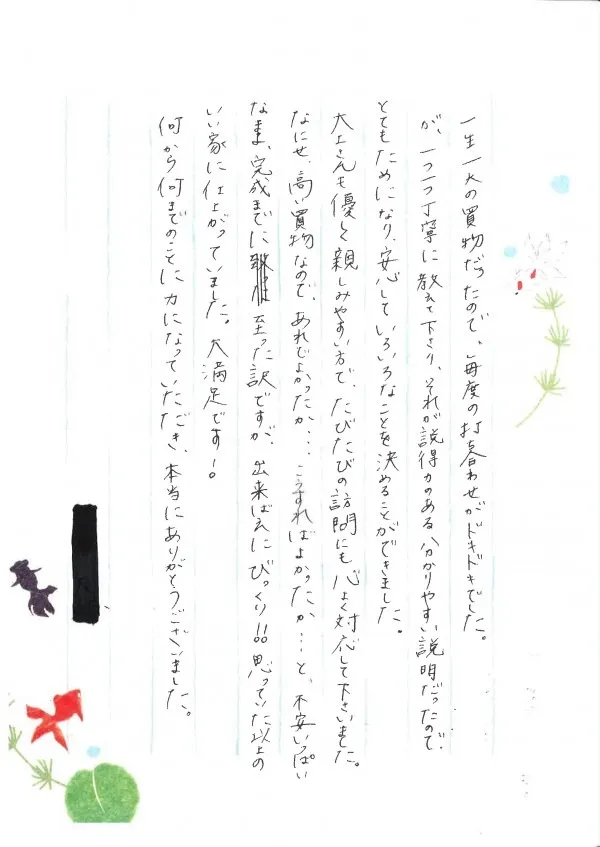 一生一大の買物だったので、毎度の打ち合わせがドキドキでした。
が、一つ一つ丁寧に教えて下さり、それが説得力のある分かりやすい説明だったので、
とてもためになり、安心していろいろなことを決めることができました。
大工さんも優しく親しみやすい方で、たびたびの訪問にも心よく対応して下さいました。
なにせ、高い買物なので、あれでよかったか…こうすればよかったか…と、不安いっぱい
なまま、完成までに至った訳ですが、出来ばえにびっくり!!思っていた以上の
いい家に仕上がっていました。大満足です!
何から何までのことに力になっていただき、本当にありがとうございました。